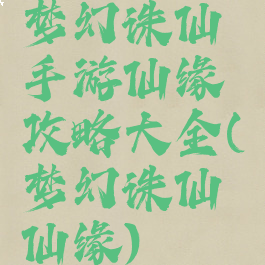 梦幻诛仙
手游仙缘
攻略大全(
梦幻诛仙
仙缘)